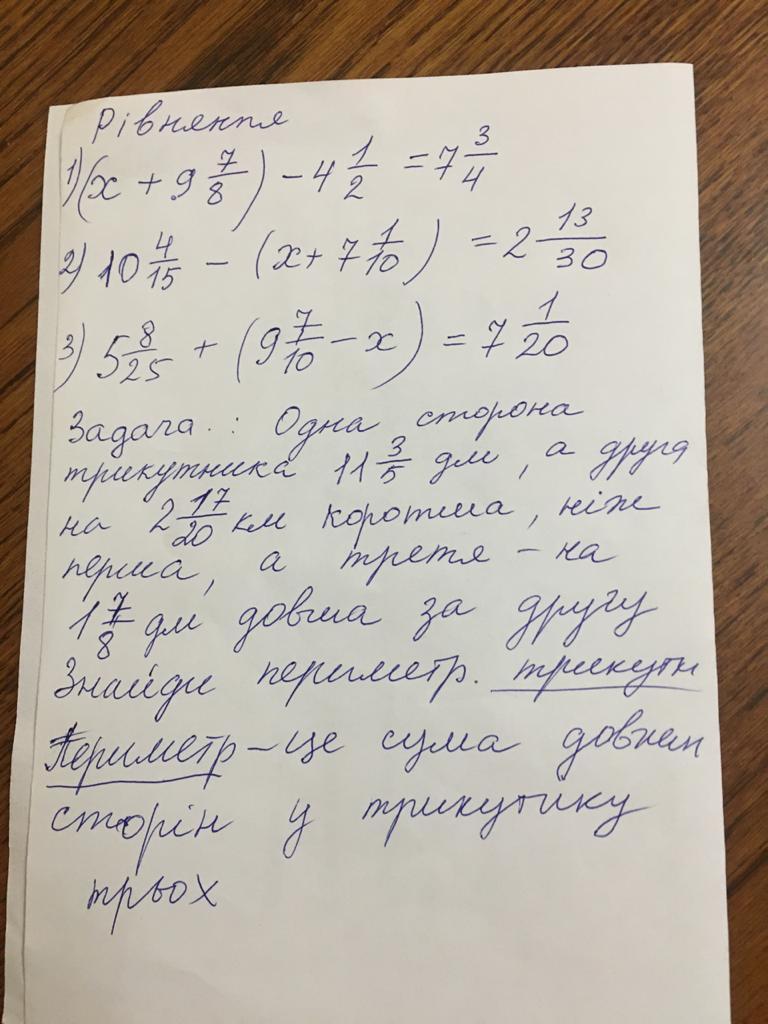 Рівняння
1) (x + 9 7/8) - 4 1/2 = 7 3/4
2) 10 4/15 - (x + 7 1/10) = 2 13/30
3) 5 8/25 + (9 7/10 - x) = 7 1/20
Задача.: Одна сторона
трикутника 11 3/5 дм, а друга
на 2 17/20 км коротша, ніж
перша, а третя - на
1 7/8 дм довша за другу
Знайди периметр. трикутн
Периметр - це сума довжин
сторін у трикутику
трьох